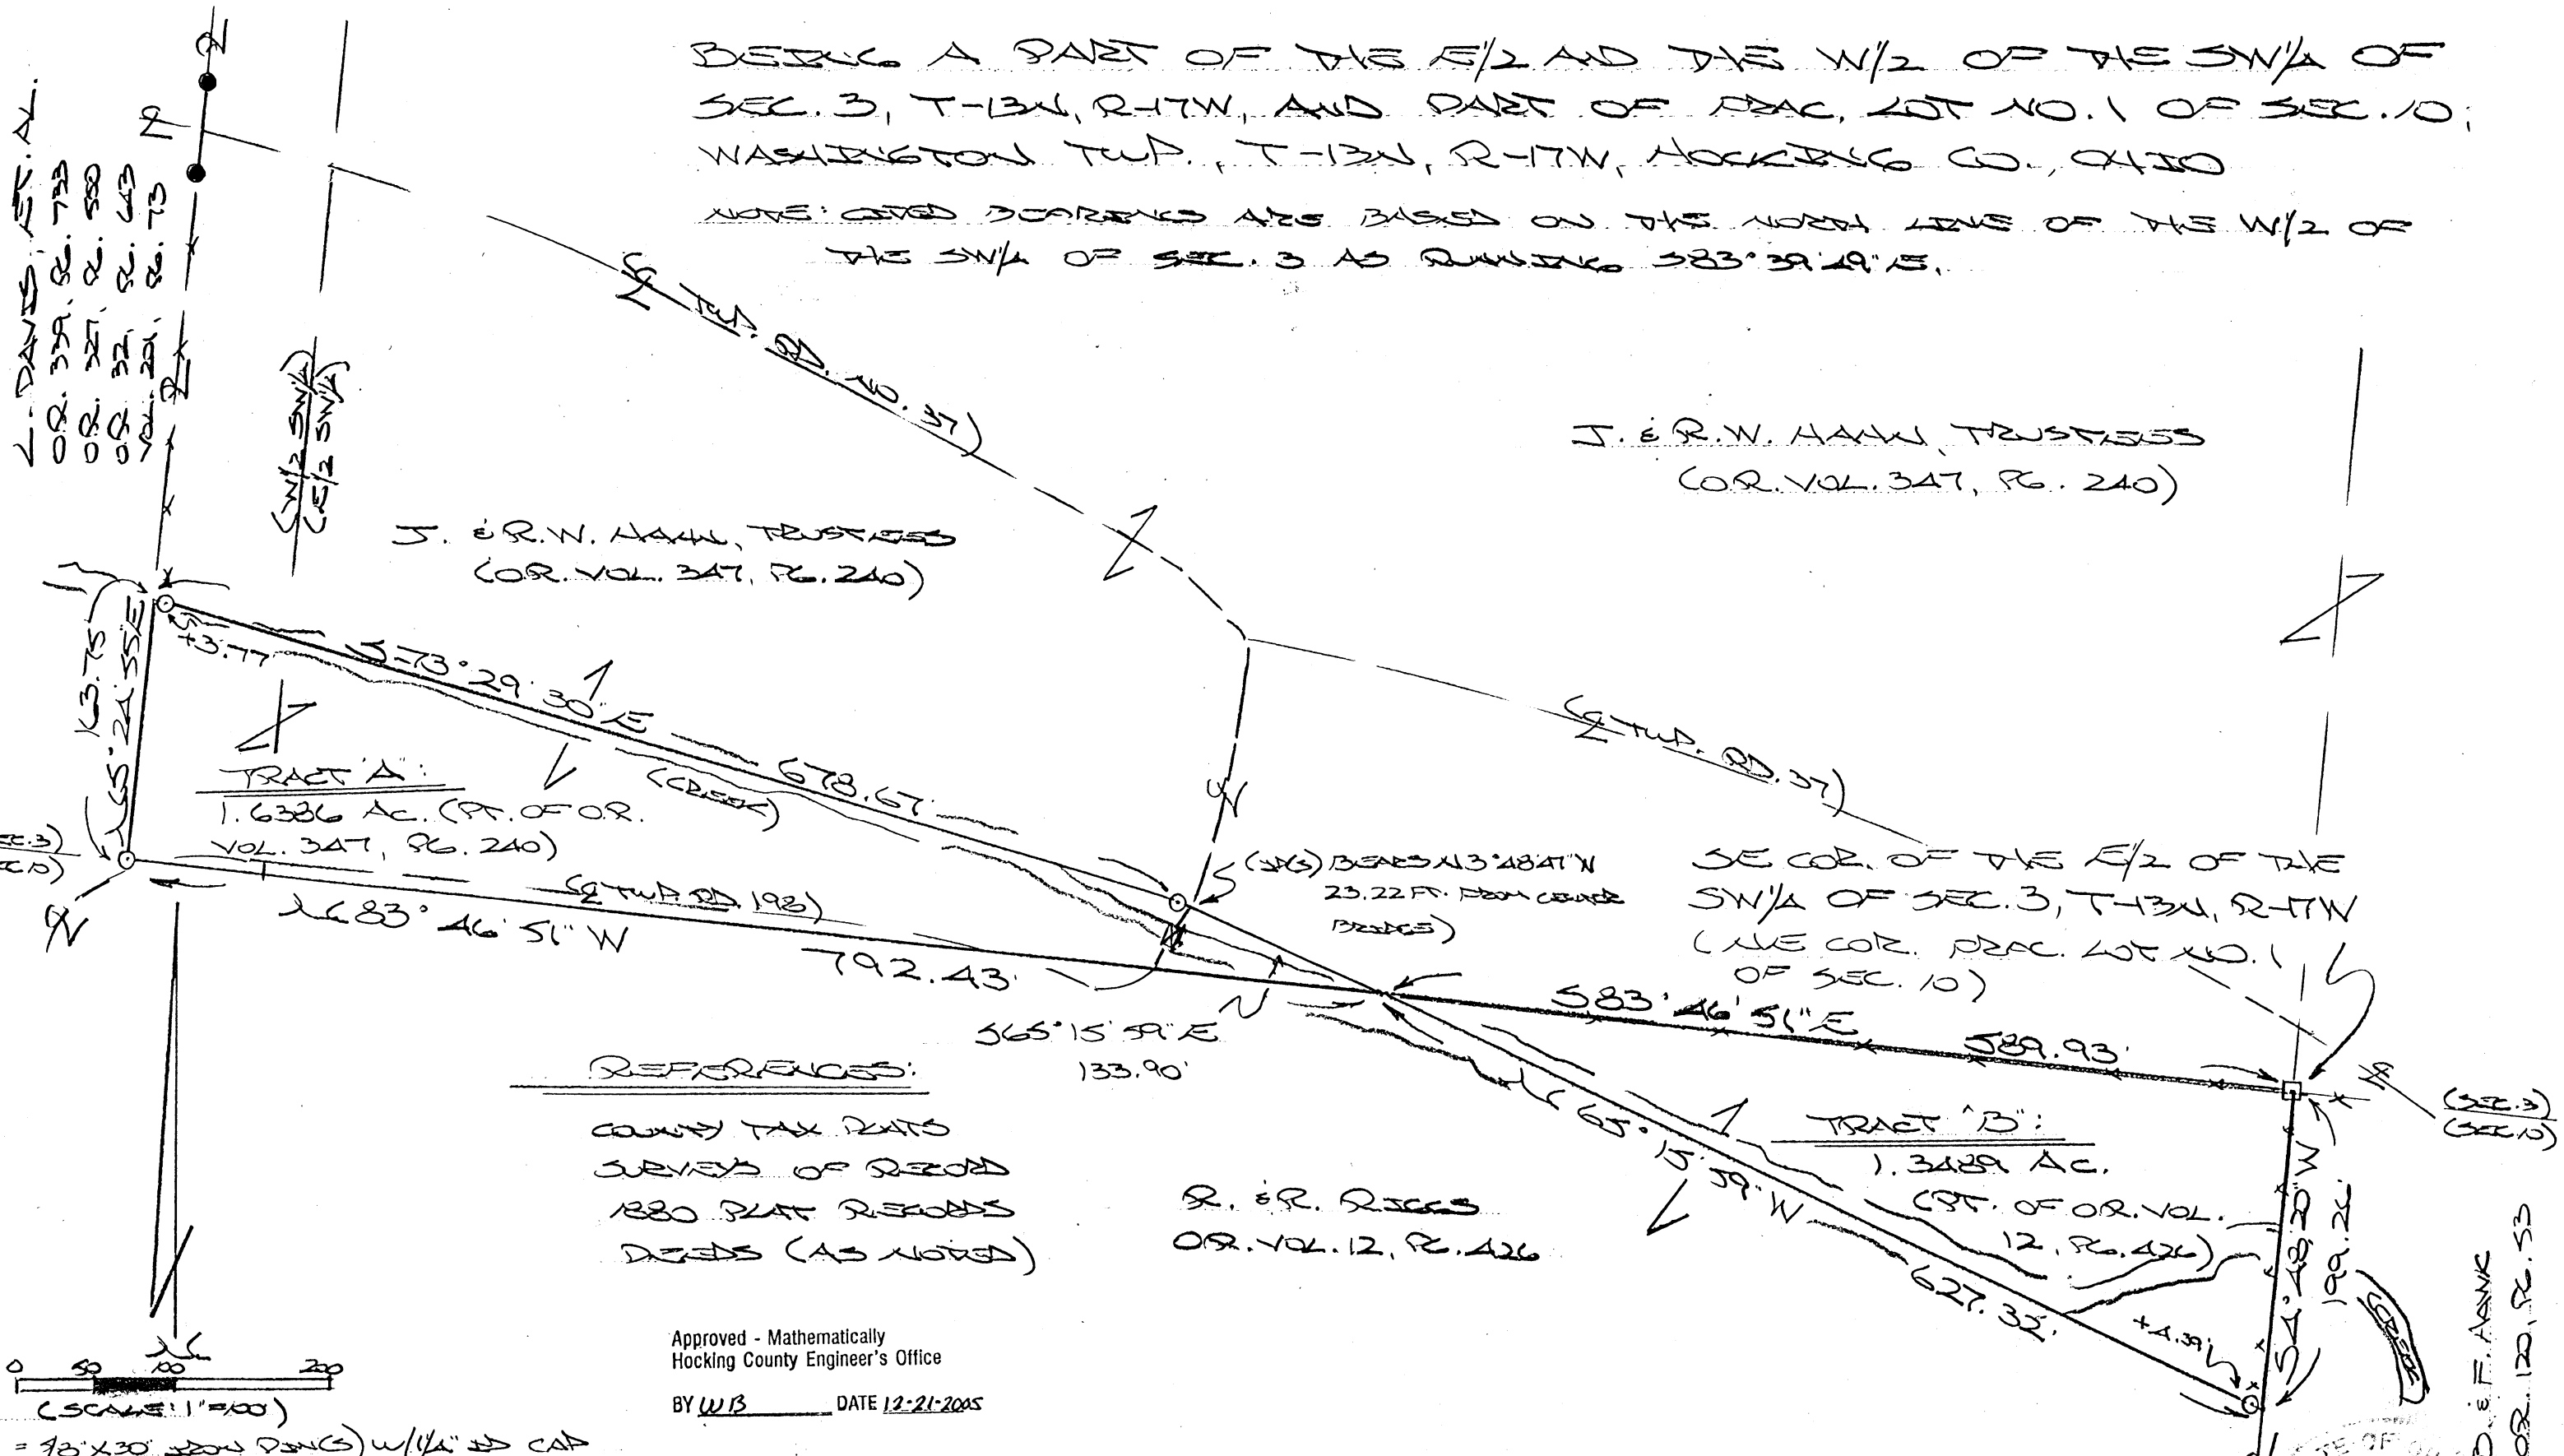 BEING A PART OF THE E/2 AND THE W/2 OF THE SW/4 OF
SEC. 3, T-13N, R-17W, AND PART OF FRAC. LOT NO. 1 OF SEC. 10;
WASHINGTON TWP., T-13N, R-17W, HOCKING CO., OHIO
NOTE: CITED BEARINGS ARE BASED ON THE NORTH LINE OF THE W/2 OF
THE SW/4 OF SEC. 3 AS RUNNING S83°39'49"E.
L. DAVIS, ET. AL.
O.R. 339, PG. 733
O.R. 327, PG. 550
O.R. 32, PG. 643
VOL. 201, PG. 73
(W/2 SW/4)
(E/2 SW/4)
(℄ TWP. RD. NO. 37)
J. & R.W. HAHN, TRUSTEES
(O.R. VOL. 347, PG. 240)
J. & R.W. HAHN, TRUSTEES
(O.R. VOL. 347, PG. 240)
163.75
N 5°24'55"E
+3.77
S-73°29'30"E
678.67'
(CREEK)
TRACT "A":
1.6386 AC. (PT. OF O.R.
VOL. 347, PG. 240)
(℄ TWP. RD. 198)
N 83°46'51"W
792.43'
(℄ TWP. RD. 37)
(IPS) BEARS N 3°48'47"W
23.22 FT. FROM CENTER
BRIDGE)
SE COR. OF THE E/2 OF THE
SW/4 OF SEC. 3, T-13N, R-17W
(NE COR. FRAC. LOT NO. 1
OF SEC. 10)
S65°15'59"E
133.90'
S83°46'51"E
589.93'
(SEC. 3)
(SEC. 10)
REFERENCES:
COUNTY TAX PLATS
SURVEYS OF RECORD
1880 PLAT RECORDS
DEEDS (AS NOTED)
R. & R. RIGGS
O.R. VOL. 12, PG. 426
N 65°15'59"W
627.32'
TRACT "B":
1.3489 AC.
(PT. OF O.R. VOL.
12, PG. 426)
+4.39'
S4°48'20"W
199.26'
(CREEK)
D. & F. HAWK
O.R. 120, PG. 53
Approved - Mathematically
Hocking County Engineer's Office
BY WB DATE 12-21-2005
N
0 50 100 200
(SCALE: 1"=100')
= 5/8"X30" IRON PIN(S) W/1¼" ID CAP